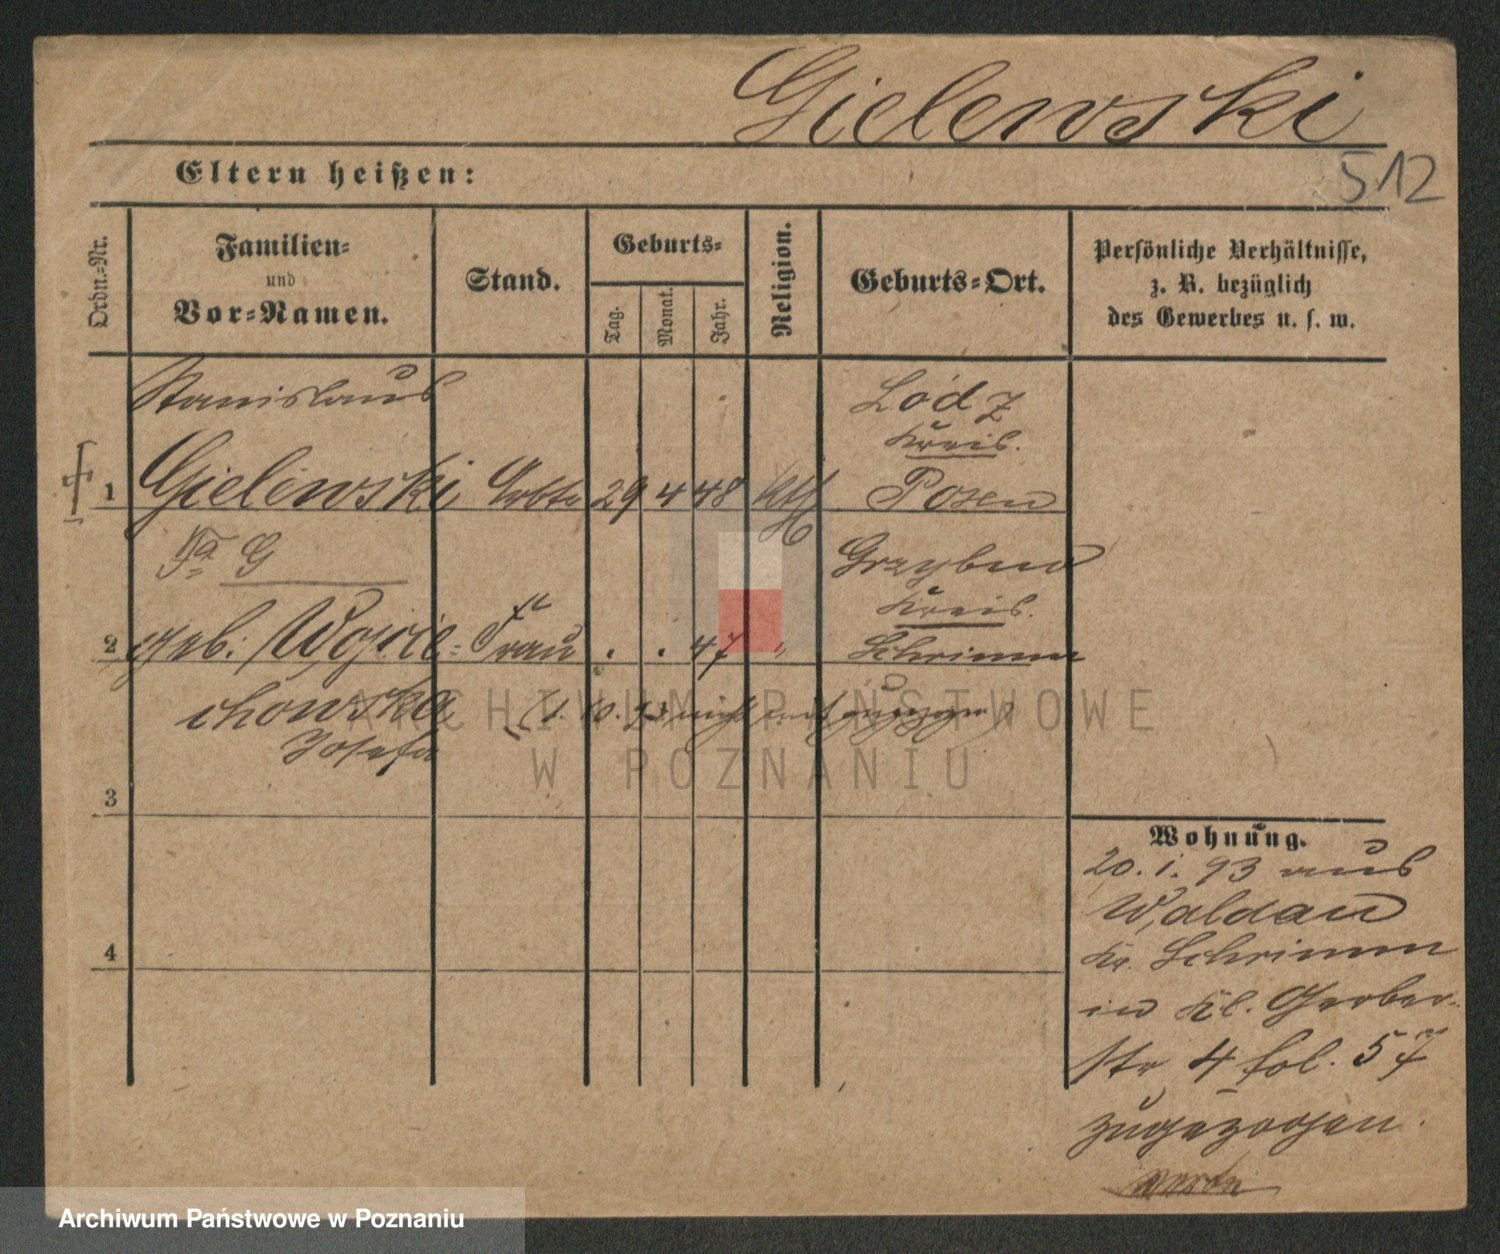 Gielewski
512
Eltern heißen:
Ordn.-Nr.
Familien-
und
Vor-Namen.
Stand.
Geburts-
Tag.
Monat.
Jahr.
Religion.
Geburts-Ort.
Persönliche Verhältnisse,
z. B. bezüglich
des Gewerbes u. s. w.
Stanislaus
Lódz
Kreis.
1 Gielewski Arbtr 29 4 48 kth Posen
Fa G
Grzybno
Kreis.
2 geb: Wojcie- Frau . . 47 " Schrimm
chowska (1. 10. 93 nicht mit zugezogen)
Josefa
3
4
Wohnung.
20. 1. 93 aus
Waldau
Kr. Schrimm
in Kl. Gerber-
str 4 fol. 57
zugezogen.
ARCHIWUM PAŃSTWOWE
W POZNANIU
Archiwum Państwowe w Poznaniu